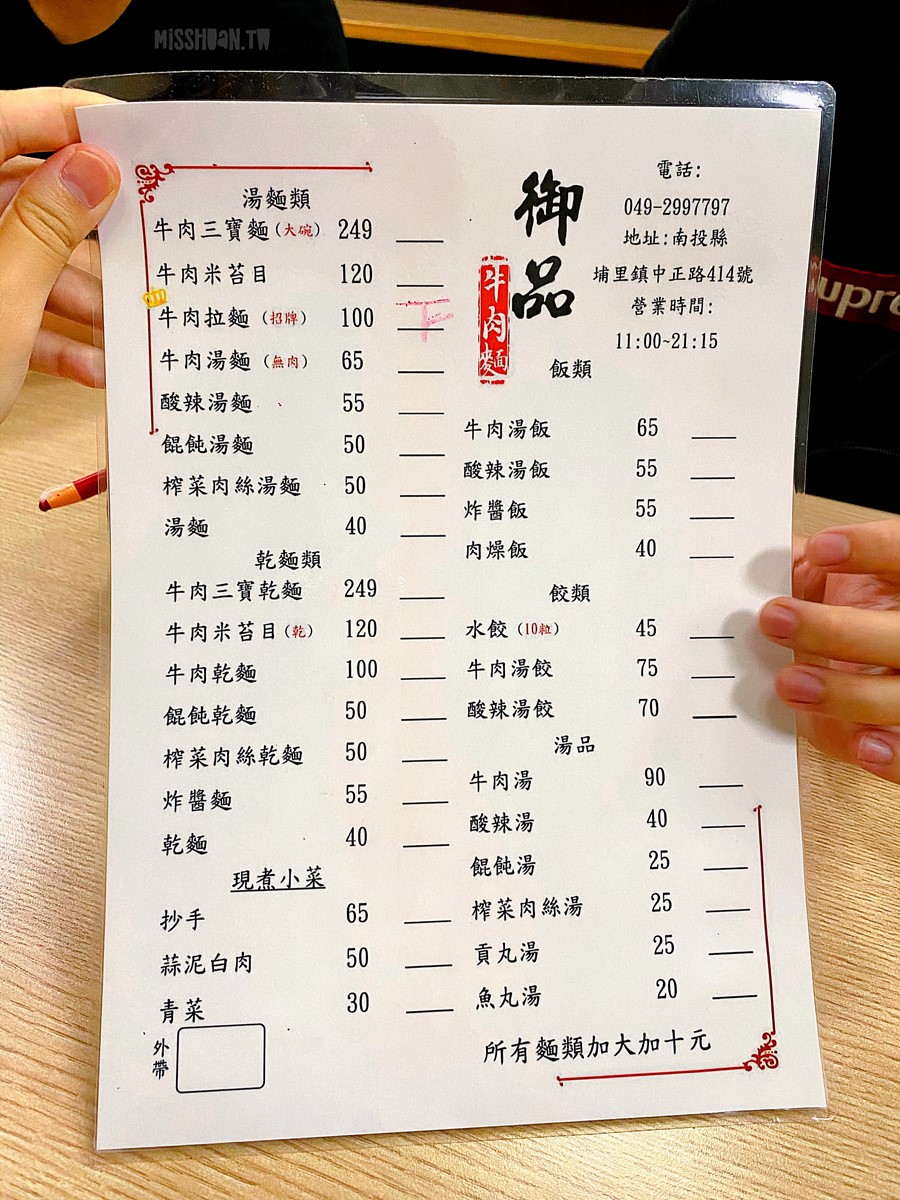 MISSHUAN.TW
湯麵類
牛肉三寶麵(大碗) 249
牛肉米苔目 120
牛肉拉麵 (招牌) 100
牛肉湯麵 (無肉) 65
酸辣湯麵 55
餛飩湯麵 50
榨菜肉絲湯麵 50
湯麵 40
乾麵類
牛肉三寶乾麵 249
牛肉米苔目(乾) 120
牛肉乾麵 100
餛飩乾麵 50
榨菜肉絲乾麵 50
炸醬麵 55
乾麵 40
現煮小菜
抄手 65
蒜泥白肉 50
青菜 30
外帶
御品
牛肉麵
電話:
049-2997797
地址:南投縣
埔里鎮中正路414號
營業時間:
11:00~21:15
飯類
牛肉湯飯 65
酸辣湯飯 55
炸醬飯 55
肉燥飯 40
餃類
水餃 (10粒) 45
牛肉湯餃 75
酸辣湯餃 70
湯品
牛肉湯 90
酸辣湯 40
餛飩湯 25
榨菜肉絲湯 25
貢丸湯 25
魚丸湯 20
所有麵類加大加十元